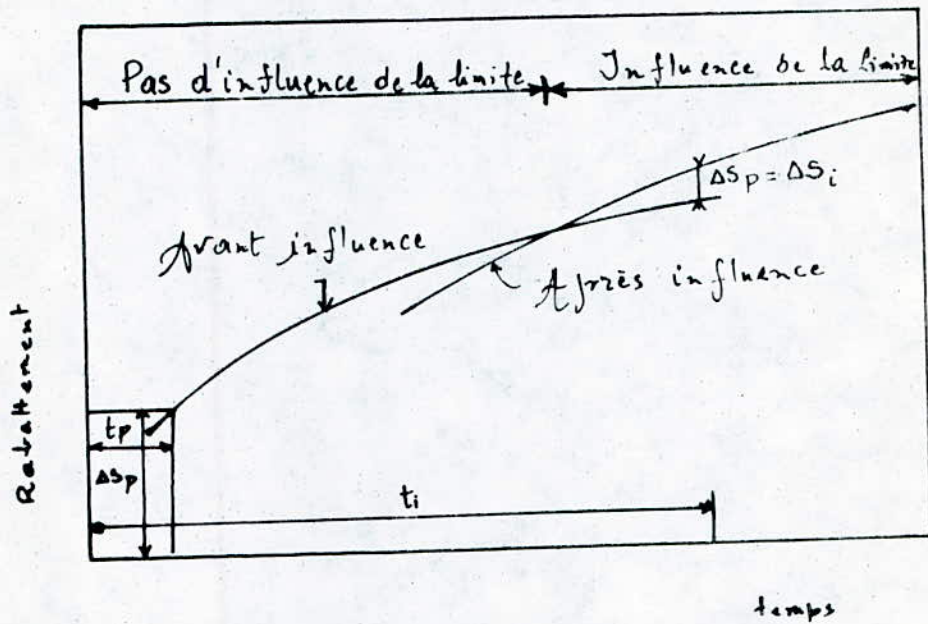 Pas d'influence de la limite
Influence de la limite
ΔSp = ΔSi
Avant influence
Après influence
Rabattement
tp
ΔSp
ti
temps